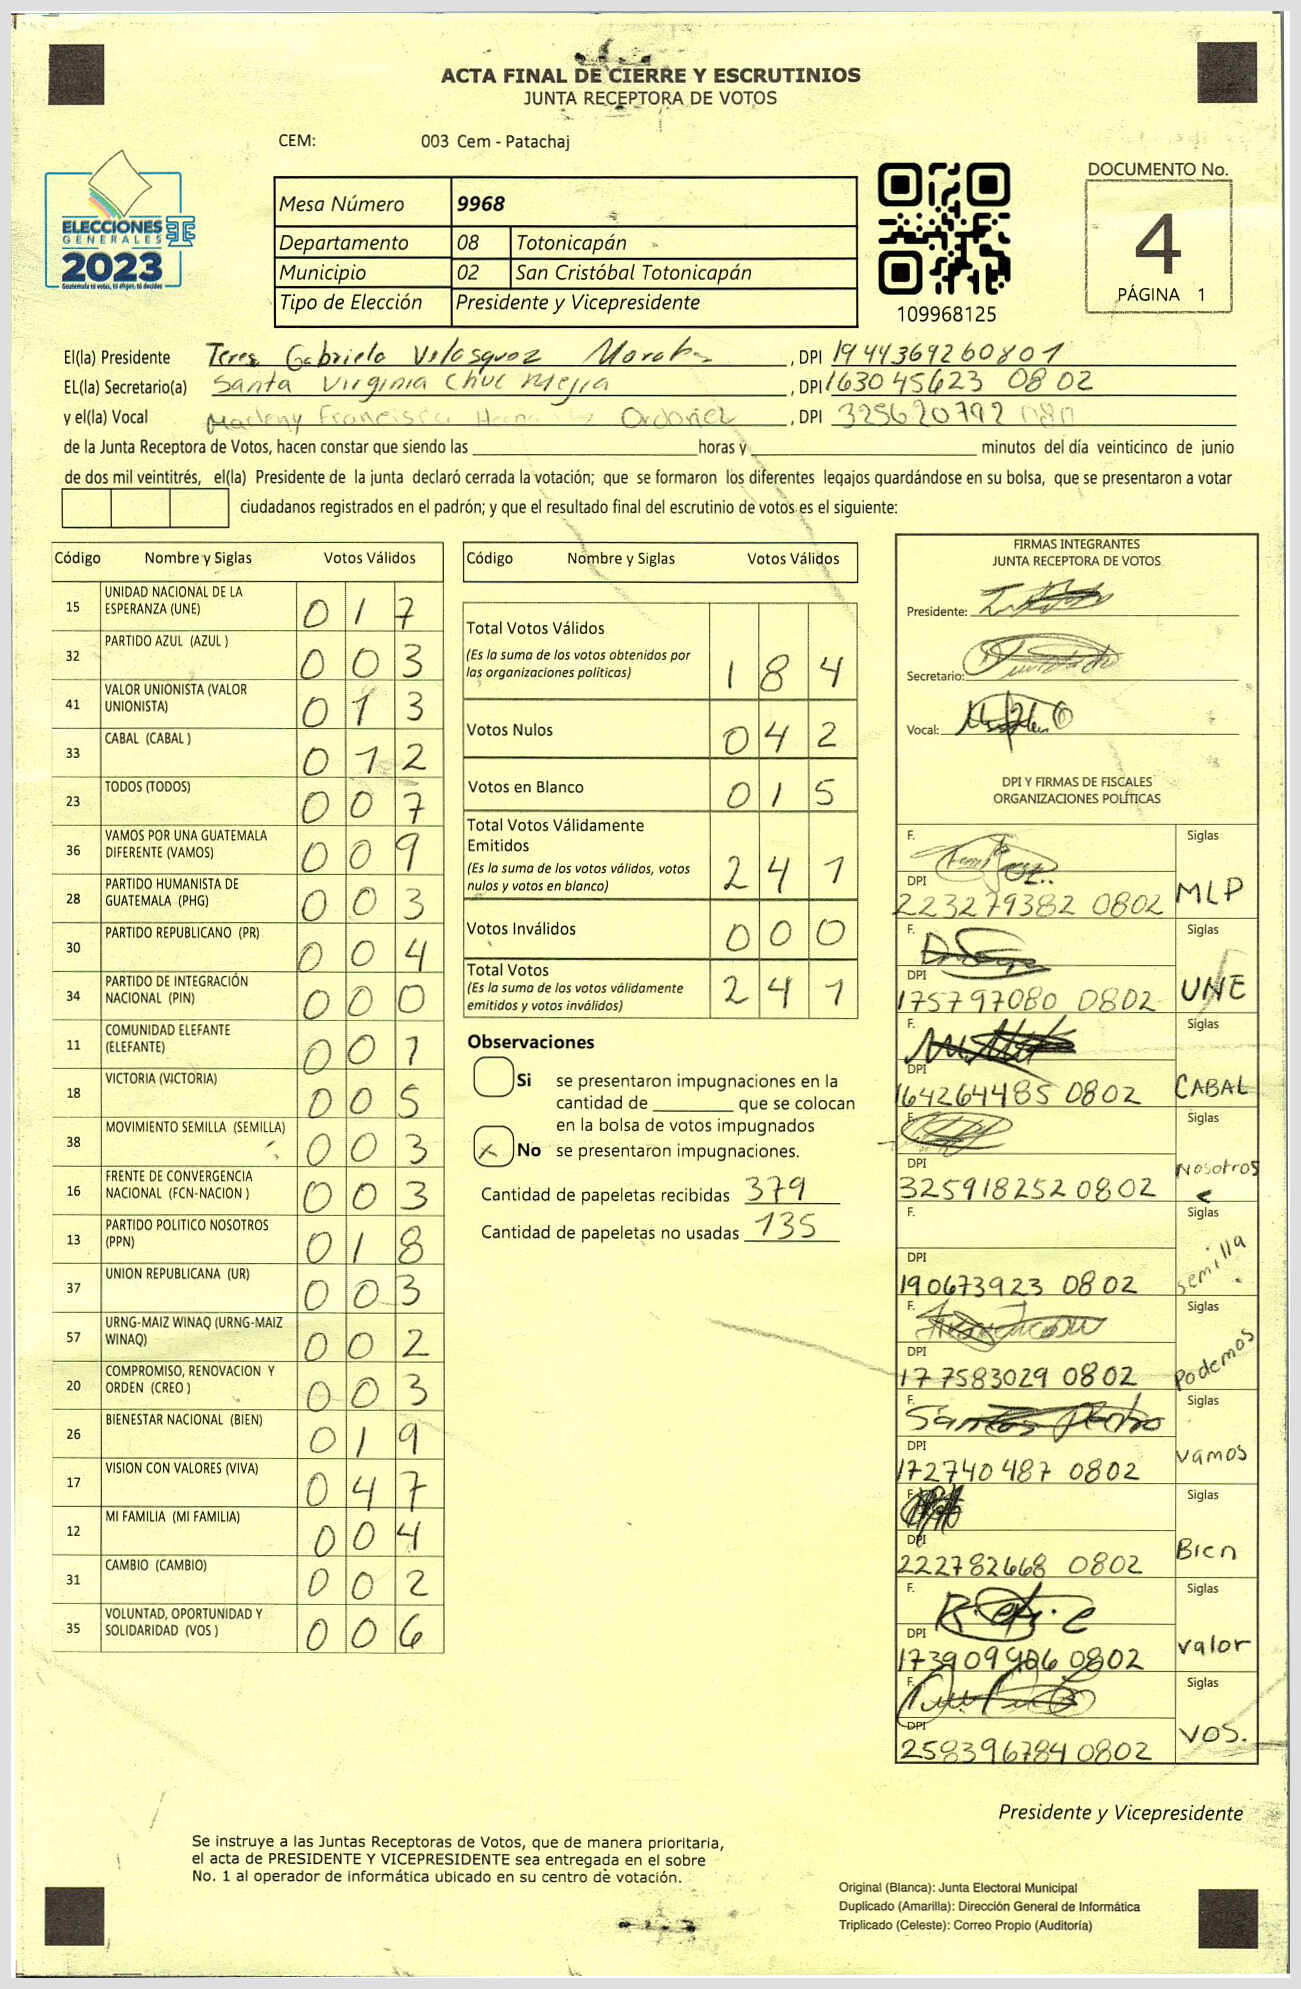 ACTA FINAL DE CIERRE Y ESCRUTINIOS
JUNTA RECEPTORA DE VOTOS
CEM: 003 Cem - Patachaj
ELECCIONES
GENERALES
2023
Guatemala tú votas, tú eliges, tú decides
Mesa Número 9968
Departamento 08 Totonicapán
Municipio 02 San Cristóbal Totonicapán
Tipo de Elección Presidente y Vicepresidente
109968125
DOCUMENTO No.
4
PÁGINA 1
El(la) Presidente Gabriela Velasquez , DPI 1944369260801
EL(la) Secretario(a) Santa Virginia Chuc Mejia , DPI 163045623 0802
y el(la) Vocal Marleny Francisca Ordoñez , DPI 325620792
de la Junta Receptora de Votos, hacen constar que siendo las horas y minutos del día veinticinco de junio
de dos mil veintitrés, el(la) Presidente de la junta declaró cerrada la votación; que se formaron los diferentes legajos guardándose en su bolsa, que se presentaron a votar
ciudadanos registrados en el padrón; y que el resultado final del escrutinio de votos es el siguiente:
Código Nombre y Siglas Votos Válidos
15 UNIDAD NACIONAL DE LA ESPERANZA (UNE) 017
32 PARTIDO AZUL (AZUL ) 003
41 VALOR UNIONISTA (VALOR UNIONISTA) 013
33 CABAL (CABAL ) 012
23 TODOS (TODOS) 007
36 VAMOS POR UNA GUATEMALA DIFERENTE (VAMOS) 009
28 PARTIDO HUMANISTA DE GUATEMALA (PHG) 003
30 PARTIDO REPUBLICANO (PR) 004
34 PARTIDO DE INTEGRACIÓN NACIONAL (PIN) 000
11 COMUNIDAD ELEFANTE (ELEFANTE) 001
18 VICTORIA (VICTORIA) 005
38 MOVIMIENTO SEMILLA (SEMILLA) 003
16 FRENTE DE CONVERGENCIA NACIONAL (FCN-NACION ) 003
13 PARTIDO POLITICO NOSOTROS (PPN) 018
37 UNION REPUBLICANA (UR) 003
57 URNG-MAIZ WINAQ (URNG-MAIZ WINAQ) 002
20 COMPROMISO, RENOVACION Y ORDEN (CREO ) 003
26 BIENESTAR NACIONAL (BIEN) 019
17 VISION CON VALORES (VIVA) 047
12 MI FAMILIA (MI FAMILIA) 004
31 CAMBIO (CAMBIO) 002
35 VOLUNTAD, OPORTUNIDAD Y SOLIDARIDAD (VOS ) 006
Código Nombre y Siglas Votos Válidos
Total Votos Válidos 184
(Es la suma de los votos obtenidos por
las organizaciones políticas)
Votos Nulos 042
Votos en Blanco 015
Total Votos Válidamente
Emitidos 241
(Es la suma de los votos válidos, votos
nulos y votos en blanco)
Votos Inválidos 000
Total Votos 241
(Es la suma de los votos válidamente
emitidos y votos inválidos)
Observaciones
Si se presentaron impugnaciones en la
cantidad de que se colocan
en la bolsa de votos impugnados
x No se presentaron impugnaciones.
Cantidad de papeletas recibidas 379
Cantidad de papeletas no usadas 135
FIRMAS INTEGRANTES
JUNTA RECEPTORA DE VOTOS
Presidente:
Secretario:
Vocal:
DPI Y FIRMAS DE FISCALES
ORGANIZACIONES POLÍTICAS
F. Siglas
DPI
223279382 0802 MLP
F. Siglas
DPI
175797080 0802 UNE
F. Siglas
DPI
164264485 0802 CABAL
F. Siglas
DPI
325918252 0802 Nosotros
F. Siglas
DPI
190673923 0802 semilla
F. Siglas
DPI
177583029 0802 Podemos
F. Siglas
DPI
172740487 0802 vamos
F. Siglas
DPI
222782668 0802 Bien
F. Siglas
DPI
173909906 0802 valor
F. Siglas
DPI
258396784 0802 VOS.
Presidente y Vicepresidente
Se instruye a las Juntas Receptoras de Votos, que de manera prioritaria,
el acta de PRESIDENTE Y VICEPRESIDENTE sea entregada en el sobre
No. 1 al operador de informática ubicado en su centro de votación.
Original (Blanca): Junta Electoral Municipal
Duplicado (Amarilla): Dirección General de Informática
Triplicado (Celeste): Correo Propio (Auditoría)